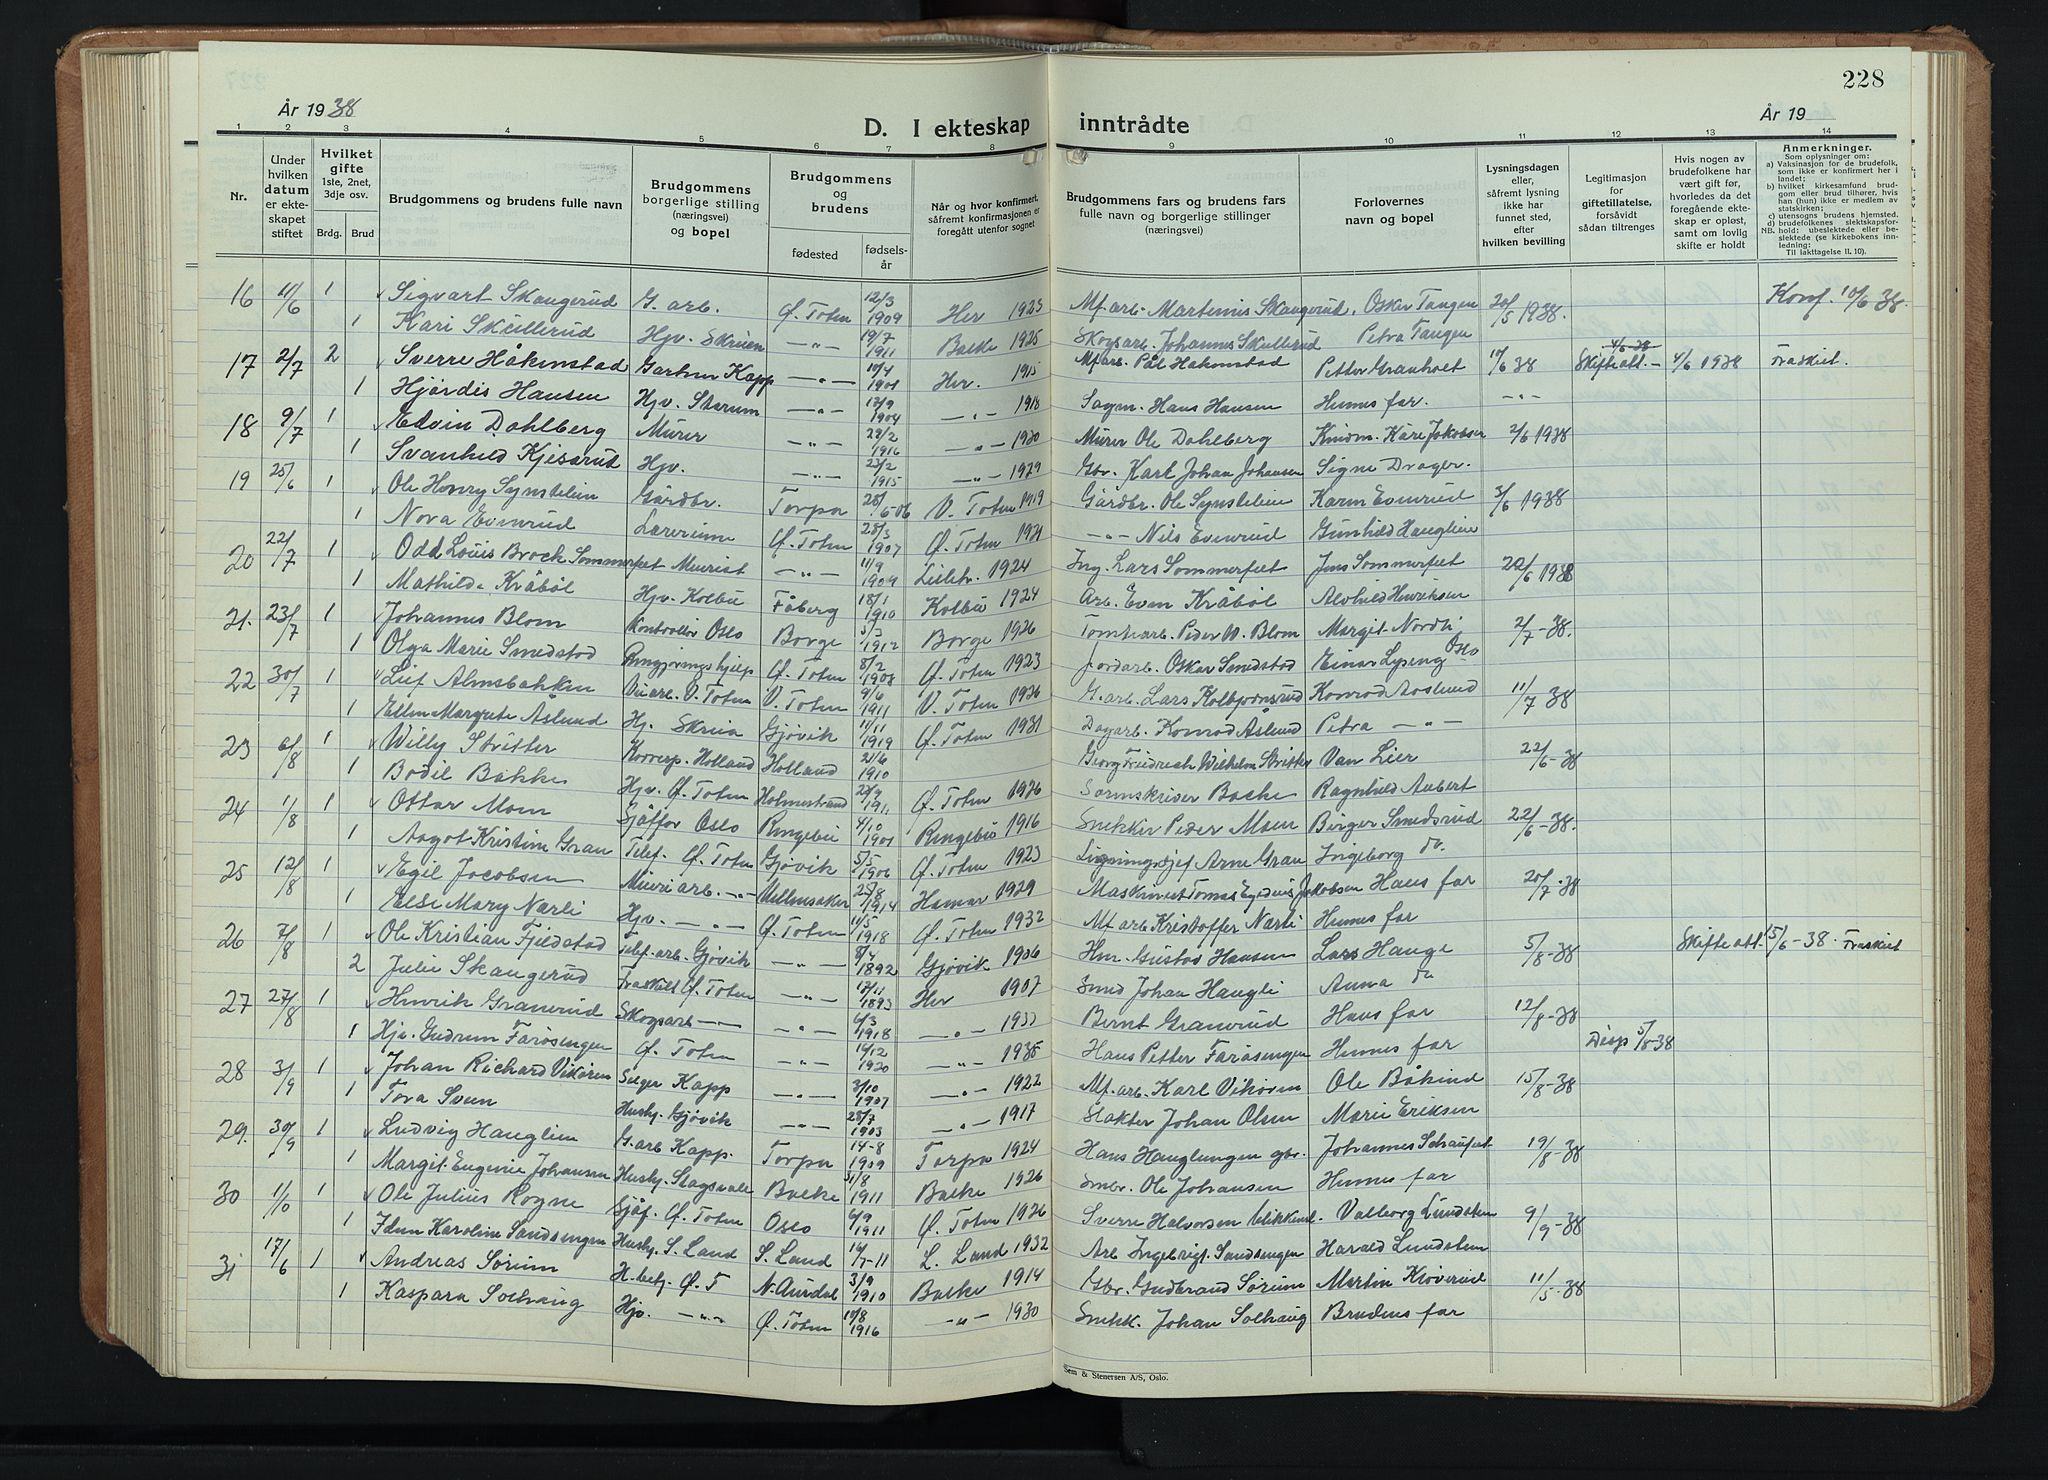 228
År 1938
D. I ekteskap inntrådte
År 19
1 2 3 4 5 6 7 8 9 10 11 12 13 14
Nr.
Under hvilken datum er ekteskapet stiftet
Hvilket gifte 1ste, 2net, 3dje osv. Brdg. Brud
Brudgommens og brudens fulle navn
Brudgommens borgerlige stilling (næringsvei) og bopel
Brudgommens og brudens fødested fødselsår
Når og hvor konfirmert, såfremt konfirmasjonen er foregått utenfor sognet
Brudgommens fars og brudens fars fulle navn og borgerlige stillinger (næringsvei)
Forlovernes navn og bopel
Lysningsdagen eller, såfremt lysning ikke har funnet sted, efter hvilken bevilling
Legitimasjon for giftetillatelse, forsåvidt sådan tiltrenges
Hvis nogen av brudefolkene har vært gift før, hvorledes da det foregående ekteskap er opløst, samt om lovlig skifte er holdt
Anmerkninger.
Som oplysninger om:
a) Vaksinasjon for de brudefolk, som ikke er konfirmert her i landet;
b) hvilket kirkesamfund brudgom eller brud tilhører, hvis han (hun) ikke er medlem av statskirken;
c) utensogns brudens hjemsted.
d) brudefolkenes slektskapsforhold: ubeslektede eller beslektede (se kirkebokens innledning:
NB. Til iakttagelse II. 10).
16 11/6 1 Sigvart Skaugerud G. arb. Ø. Toten 12/3 1909 Her 1923 Mf. arb. Martinius Skaugerud. Oskar Tangen 20/5 1938. Konf. 10/6 38.
1 Kari Skullerud Hjv. Skreien —„— 19/7 1911 Balke 1925 Skogsarb. Johannes Skullerud Petra Tangen
17 2/7 2 Sverre Håkenstad Gartner Kapp —„— 10/4 Her. 1915 Mf arb. Pål Håkonstad Petter Granholt 10/6 38 Skifteatt.— 4/6 1938 Fraskilt.
1 Hjördis Hansen Hjv. Sterum —„— 1904 —„— 1918 Sagm. Hans Hansen Hennes far. —„—
18 9/7 1 Edvin Dahlberg Murer —„— 1916 —„— 1930 Murer Ole Dahlberg Kåre Jakobsen 2/6 1938
1 Svanhild Kjisrud Hjv. —„— 23/2 1915 —„— 1929 Gbr. Karl Johan Johansen Signe Drager.
19 25/6 1 Ole Henry Synstelien Gårdbr. Torpa V. Toten 1919 Gårdbr. Ole Synstelien Karen Evenrud 3/6 1938
1 Nora Evenrud Lærerinne Ø. Toten 28/3 1907 Ø. Toten 1921 —„— Nils Evenrud Gunhild Hauglien
20 22/7 1 Odd Louis Brock Sommerfelt —„— 11/9 1909 Lilleh. 1924 Ing. Lars Sommerfelt Jens Sommerfelt 1938
1 Mathilde Kråböl Hjv. Kolbu Fåberg 18/1 1910 Kolbu 1924 Arb. Even Kråböl Alvhild Henriksen
21. 23/7 1 Johannes Blom Kontrollör Oslo Borge 1912 Borge 1926 Tomtearb. Peder W. Blom Margit Nordli 2/7-38.
1 Olga Marie Smedstad Rengjøringshjelp Ø. Toten 8/2 Ø. Toten 1923 Jordarb. Oskar Smedstad Einar Lyseng Oslo
22 30/7 1 Leif Almsbakken V. Toten V. Toten 9/6 1911 V. Toten 1926 G. arb. Lars Kolbjørnsrud Konrad Aaslund 11/7 38
1 Ellen Margrete Åslund Hj. Skreia Gjøvik 11/11 1919 Ø. Toten 1931 Dagarb. Konrad Åslund Petra —„—
23 6/8 1 Willy Stritter Korresp. Holland Holland 21/6 1910 Georg Friedrich Wilhelm Stritter Van Lier 22/6-38
1 Bodil Bakke Hjv. Ø. Toten Holmestrand 1911 Ø. Toten 1926 Sorenskriver Bakke Ragnhild Aubert
24 1/8 1 Ottar Moen Sjåffør Oslo Ringebu 4/10 Ringebu 1916 Snekker Peder Moen Birger Smedsrud 22/6-38.
1 Aagot Kristine Gran Telef. Ø. Toten Gjøvik 5/5 1906 Ø. Toten 1923 Ligningssjef Arne Gran Ingeborg do.
25 12/8 1 Egil Jacobsen Meieriarb. —„— Ullensaker 25/8 1914 Hamar 1929 Maskinist Tomas Egedius Jakobsen Hans far 20/7-38
1 Else Mary Nærli Hjv. —„— Ø. Toten 11/5 1918 Ø. Toten 1932 Mf arb Kristoffer Nærli Hennes far
26 7/8 1 Ole Kristian Fjeldstad Telef. arb. Gjøvik —„— 1892 Gjøvik 1906 Hmr. Gustav Hansen Lars Hauge 5/8-38 Skifte att. 15/6-38. Fraskilt
2 Julie Skaugerud Fraskilt Ø. Toten —„— 17/11 1893 Her 1907 Smed Johan Haugli Anna do
27 27/8 1 Henrik Granerud Skogsarb —„— —„— 6/3 1918 —„— 1933 Bernt Granerud Hans far 12/8-38
1 Hjv. Gudrun Faråsengen Ø. Toten —„— 14/12 1920 —„— 1935 Hans Petter Faråsengen Hennes far Disp 5/8-38
28 3/9 1 Johan Richard Vikøren Selger Kapp —„— 3/10 1907 —„— 1922 Mf. arb. Karl Vikøren Ole Båkind 15/8-38
1 Tora Sveen Hushj. Gjøvik —„— 1903 —„— 1917 Slakter Johan Olsen Marie Eriksen
29. 30/9 1 Ludvig Hauglien G. arb Kapp. Torpa 14-8 1909 Torpa 1924 Hans Hauglungen gbr. Johannes 19/8-38
1 Margit Eugenie Johansen Hushj. Balke 31/8 1911 Balke 1926 Smbr. Ole Johansen Hennes far
30 1/10 1 Ole Julius Rogne Sjåf. Ø. Toten Oslo 6/9 1911 Ø. Toten 1926 Sverre Halvorsen blikkensl. Valborg Lundsten 9/9-38
1 Idun Karoline Sandsengen Hushj. S. Land S. Land 14/7-11 L. Land 1932 Arb Ingebrigt Sandsengen Harald Lundsten
31 17/6 1 Andreas Sørum H. betj. Ø. T N. Aurdal 3/9 1910 Balke 1914 Gbr. Gudbrand Sørum Martin Kløverud 11/5-38
1 Kaspara Solhaug Hjv. —„— Ø. Toten 10/8 1916 —„— 1930 Snekk. Johan Solhaug Brudens far
Sem & Stenersen A/S, Oslo.